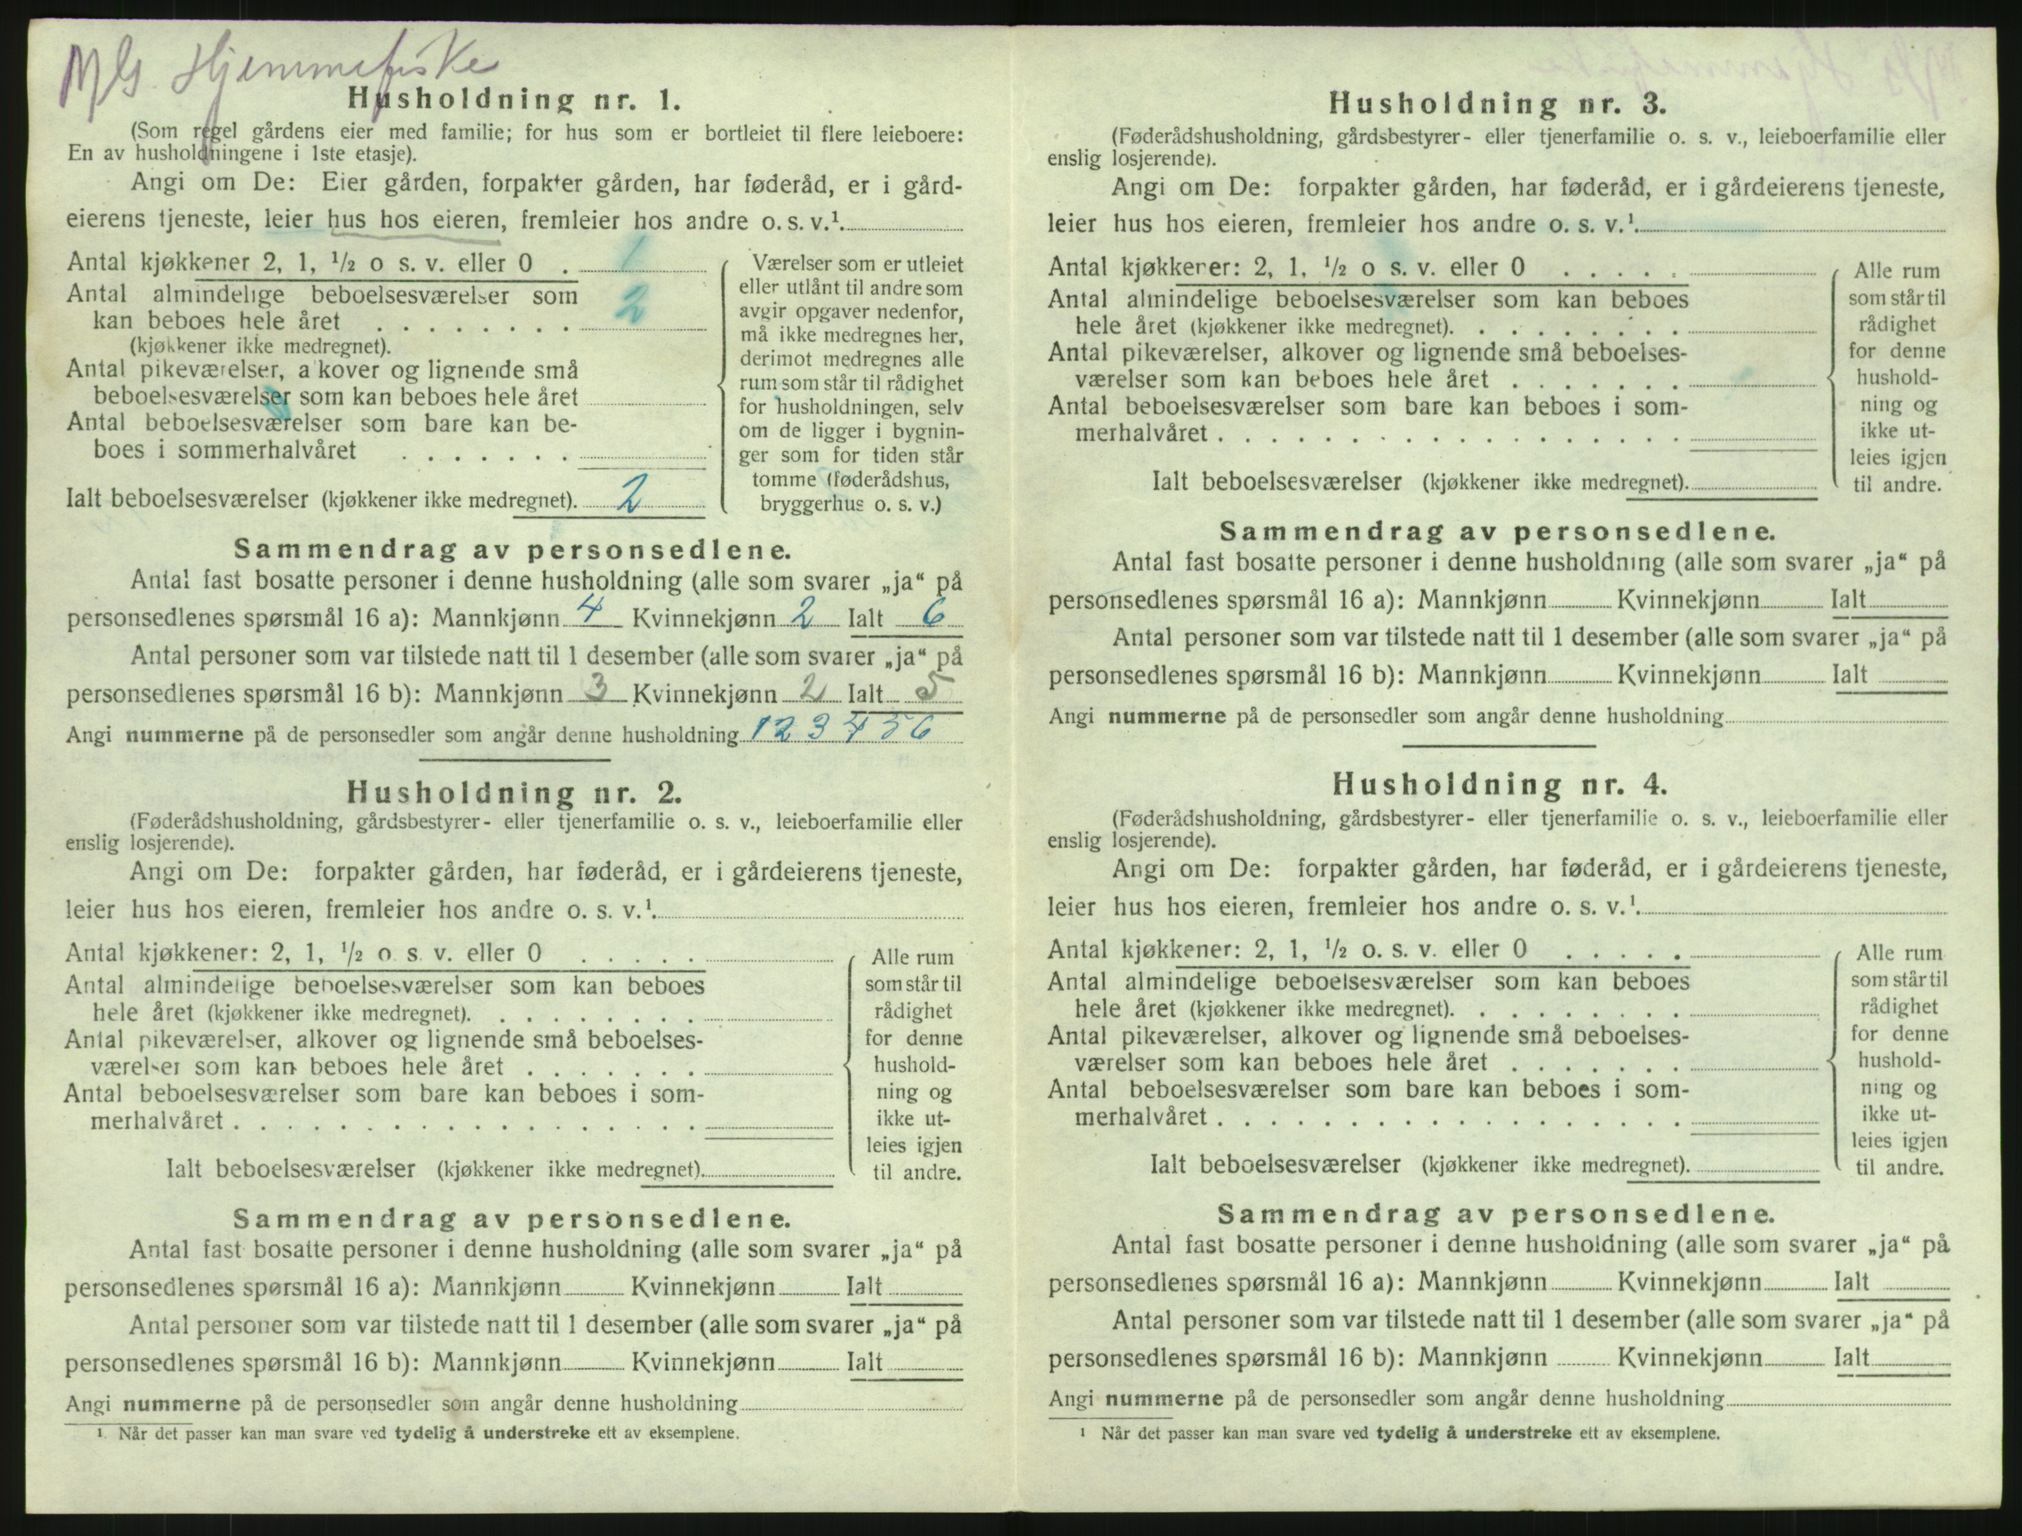 M/G. Hjemmefiske
Husholdning nr. 1.
(Som regel gårdens eier med familie; for hus som er bortleiet til flere leieboere:
En av husholdningene i 1ste etasje).
Angi om De: Eier gården, forpakter gården, har føderåd, er i gård-
eierens tjeneste, leier hus hos eieren, fremleier hos andre o. s. v.¹
Antal kjøkkener 2, 1, ½ o s. v. eller 0 . 1
Antal almindelige beboelsesværelser som
kan beboes hele året . . . . . . . . 2
(kjøkkener ikke medregnet).
Antal pikeværelser, alkover og lignende små
beboelsesværelser som kan beboes hele året
Antal beboelsesværelser som bare kan be-
boes i sommerhalvåret . . . . . . .
Ialt beboelsesværelser (kjøkkener ikke medregnet). 2
Værelser som er utleiet
eller utlånt til andre som
avgir opgaver nedenfor,
må ikke medregnes her,
derimot medregnes alle
rum som står til rådighet
for husholdningen, selv
om de ligger i bygnin-
ger som for tiden står
tomme (føderådshus,
bryggerhus o. s. v.)
Sammendrag av personsedlene.
Antal fast bosatte personer i denne husholdning (alle som svarer „ja“ på
personsedlenes spørsmål 16 a): Mannkjønn 4 Kvinnekjønn 2 Ialt 6
Antal personer som var tilstede natt til 1 desember (alle som svarer „ja“ på
personsedlenes spørsmål 16 b): Mannkjønn 3 Kvinnekjønn 2 Ialt 5
Angi nummerne på de personsedler som angår denne husholdning 1 2 3 4 5 6
Husholdning nr. 2.
(Føderådshusholdning, gårdsbestyrer- eller tjenerfamilie o. s. v., leieboerfamilie eller
enslig losjerende).
Angi om De: forpakter gården, har føderåd, er i gårdeierens tjeneste,
leier hus hos eieren, fremleier hos andre o. s. v.¹.
Antal kjøkkener: 2, 1, ½ o. s. v. eller 0 . . . . .
Antal almindelige beboelsesværelser som kan beboes
hele året (kjøkkener ikke medregnet). . . . . . . . .
Antal pikeværelser, alkover og lignende små beboelses-
værelser som kan beboes hele året . . . . . . .
Antal beboelsesværelser som bare kan beboes i som-
merhalvåret . . . . . . . . . . . . . . . . . .
Ialt beboelsesværelser (kjøkkener ikke medregnet).
Alle rum
som står til
rådighet
for denne
hushold-
ning og
ikke ut-
leies igjen
til andre.
Sammendrag av personsedlene.
Antal fast bosatte personer i denne husholdning (alle som svarer „ja“ på
personsedlenes spørsmål 16 a): Mannkjønn Kvinnekjønn Ialt
Antal personer som var tilstede natt til 1 desember (alle som svarer „ja“ på
personsedlenes spørsmål 16 b): Mannkjønn Kvinnekjønn Ialt
Angi nummerne på de personsedler som angår denne husholdning
¹. Når det passer kan man svare ved tydelig å understreke ett av eksemplene.
Husholdning nr. 3.
(Føderådshusholdning, gårdsbestyrer- eller tjenerfamilie o. s. v., leieboerfamilie eller
enslig losjerende).
Angi om De: forpakter gården, har føderåd, er i gårdeierens tjeneste,
leier hus hos eieren, fremleier hos andre o. s. v.¹.
Antal kjøkkener: 2, 1, ½ o s. v. eller 0 . . . . .
Antal almindelige beboelsesværelser som kan beboes
hele året (kjøkkener ikke medregnet). . . . . . . . .
Antal pikeværelser, alkover og lignende små beboelses-
værelser som kan beboes hele året . . . . . . .
Antal beboelsesværelser som bare kan beboes i som-
merhalvåret . . . . . . . . . . . . . . . . . .
Ialt beboelsesværelser (kjøkkener ikke medregnet).
Alle rum
som står til
rådighet
for denne
hushold-
ning og
ikke ut-
leies igjen
til andre.
Sammendrag av personsedlene.
Antal fast bosatte personer i denne husholdning (alle som svarer „ja“ på
personsedlenes spørsmål 16 a): Mannkjønn Kvinnekjønn Ialt
Antal personer som var tilstede natt til 1 desember (alle som svarer „ja“ på
personsedlenes spørsmål 16 b): Mannkjønn Kvinnekjønn Ialt
Angi nummerne på de personsedler som angår denne husholdning
Husholdning nr. 4.
(Føderådshusholdning, gårdsbestyrer- eller tjenerfamilie o. s. v., leieboerfamilie eller
enslig losjerende).
Angi om De: forpakter gården, har føderåd, er i gårdeierens tjeneste,
leier hus hos eieren, fremleier hos andre o. s. v.¹.
Antal kjøkkener: 2, 1, ½ o. s. v. eller 0 . . . . .
Antal almindelige beboelsesværelser som kan beboes
hele året (kjøkkener ikke medregnet). . . . . . . . .
Antal pikeværelser, alkover og lignende små beboelses-
værelser som kan beboes hele året . . . . . . .
Antal beboelsesværelser som bare kan beboes i som-
merhalvåret . . . . . . . . . . . . . . . . . .
Ialt beboelsesværelser (kjøkkener ikke medregnet).
Alle rum
som står til
rådighet
for denne
hushold-
ning og
ikke ut-
leies igjen
til andre.
Sammendrag av personsedlene.
Antal fast bosatte personer i denne husholdning (alle som svarer „ja“ på
personsedlenes spørsmål 16 a): Mannkjønn Kvinnekjønn Ialt
Antal personer som var tilstede natt til 1 desember (alle som svarer „ja“ på
personsedlenes spørsmål 16 b): Mannkjønn Kvinnekjønn Ialt
Angi nummerne på de personsedler som angår denne husholdning
¹ Når det passer kan man svare ved tydelig å understreke ett av eksemplene.